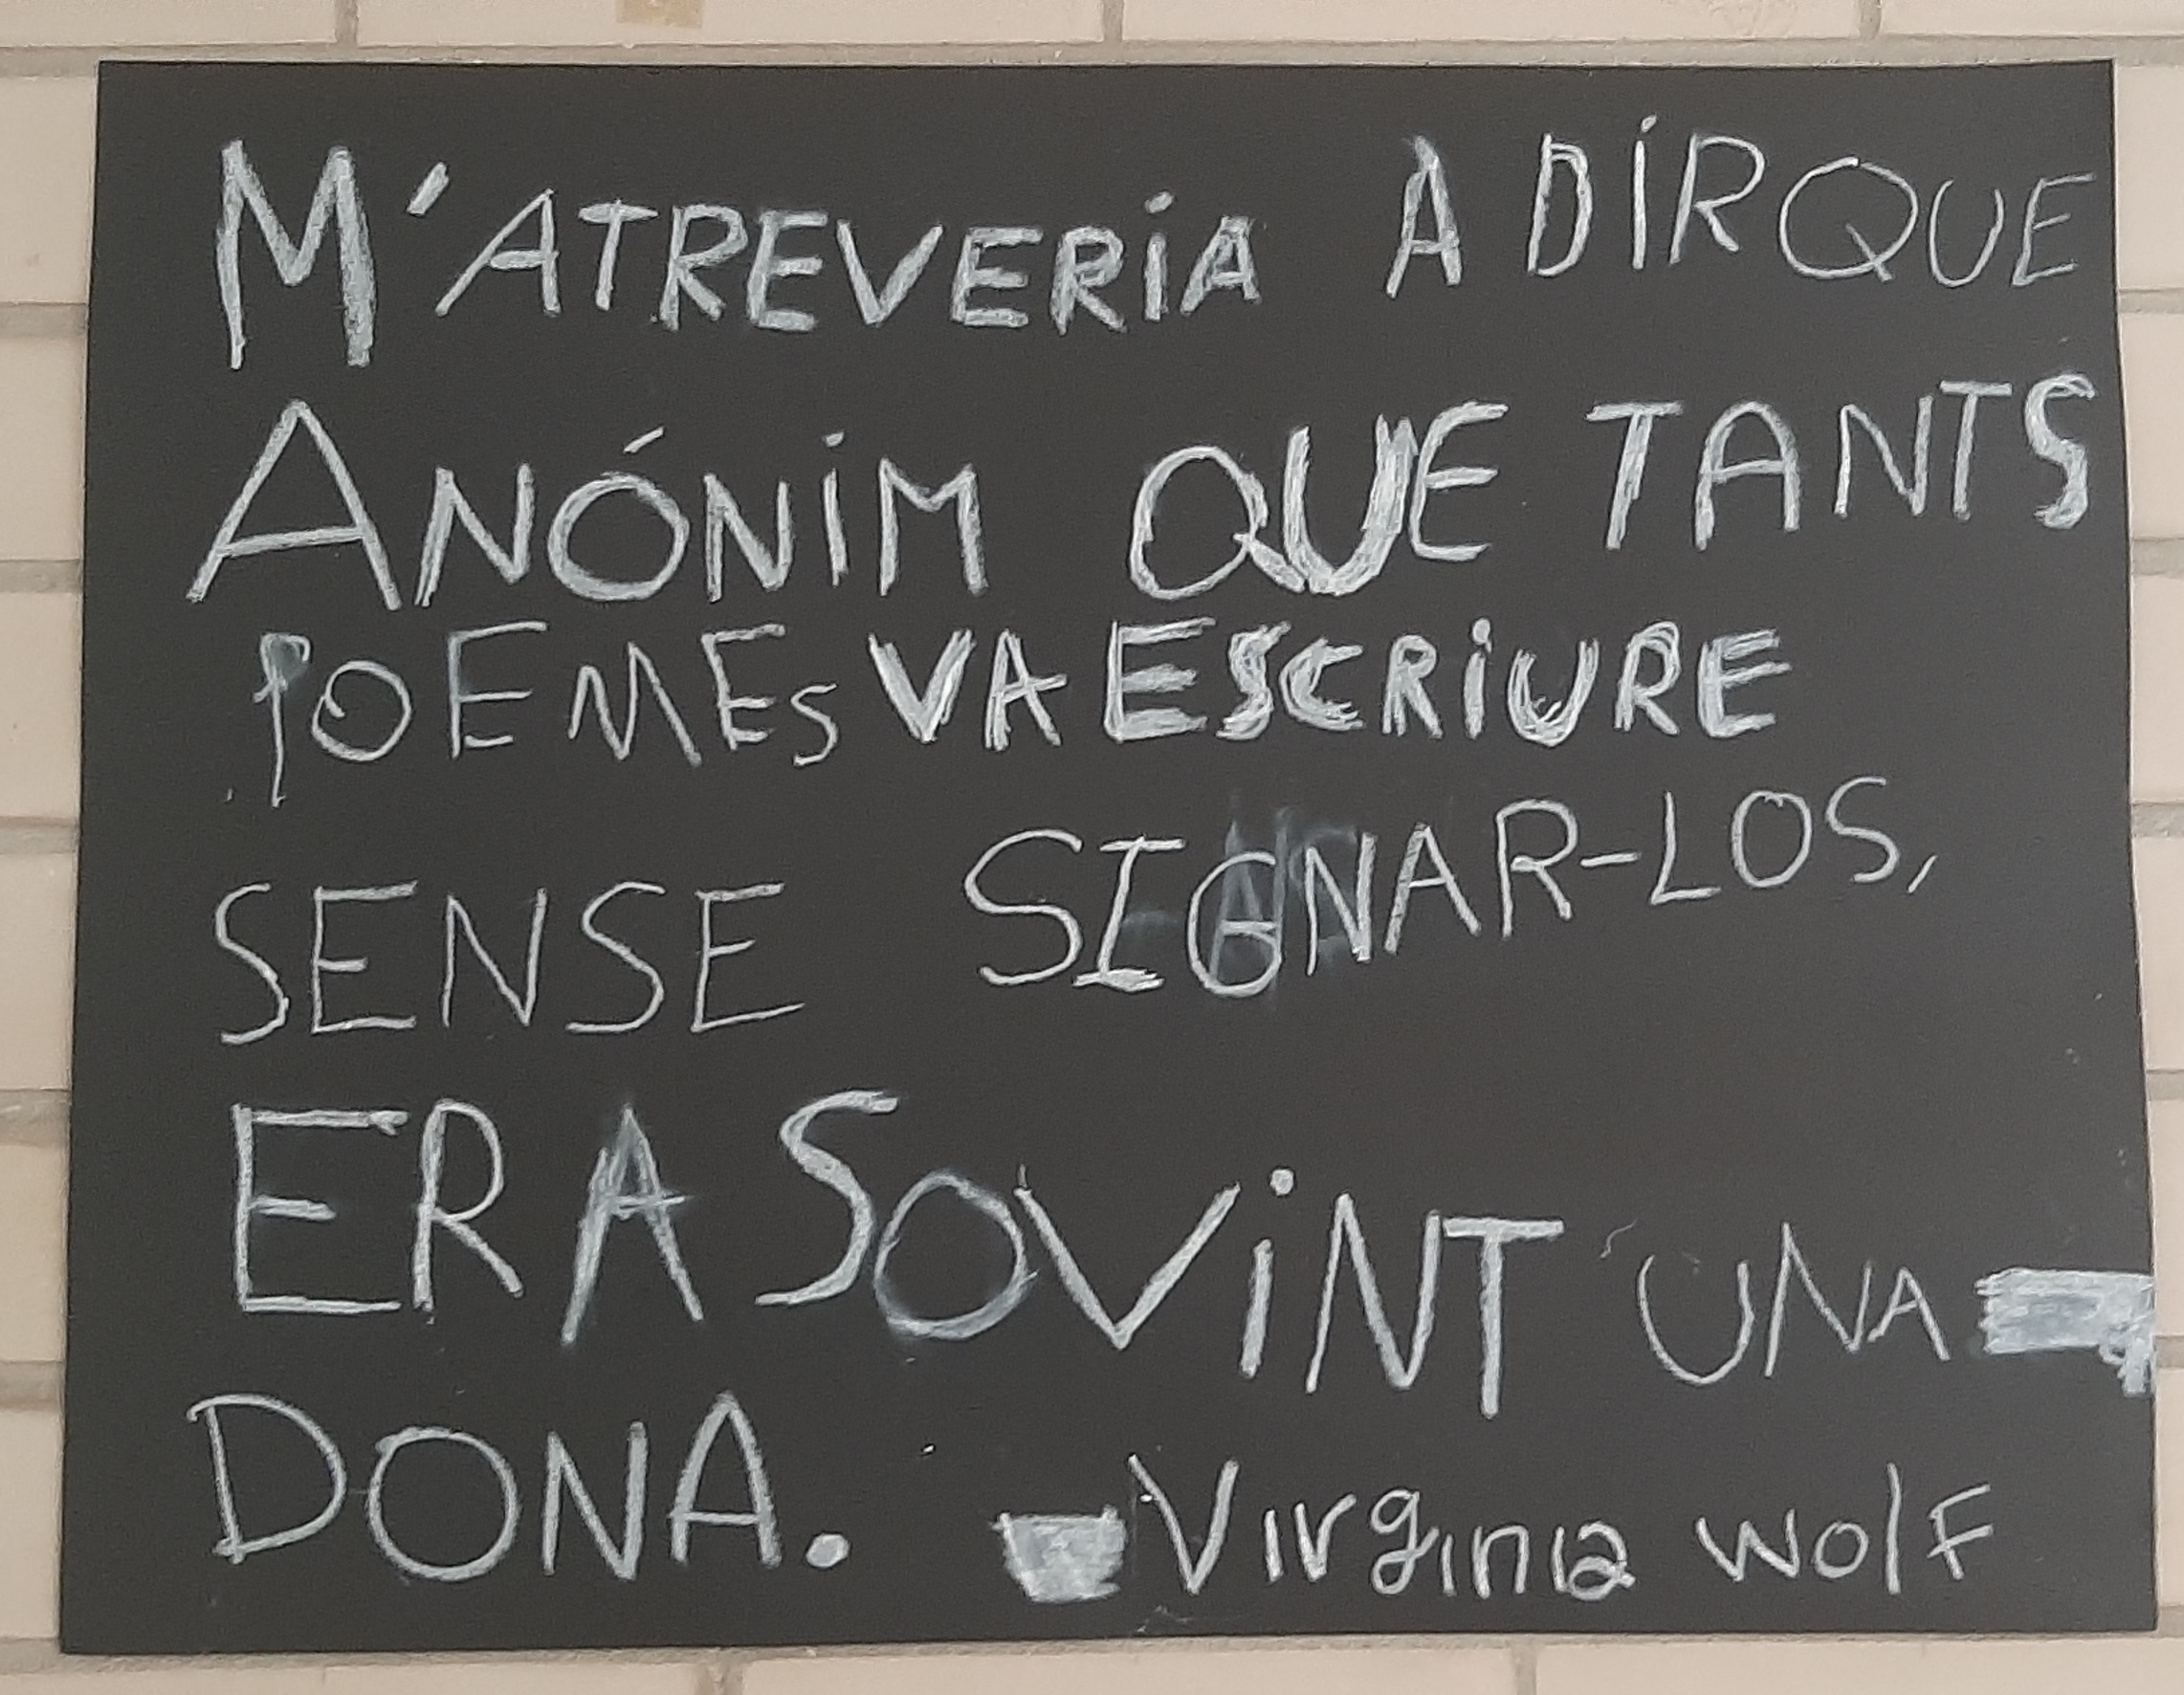 M'ATREVERIA A DIR QUE
ANÓNIM QUE TANTS
POEMES VA ESCRIURE
SENSE SIGNAR-LOS,
ERA SOVINT UNA
DONA. Virginia Wolf